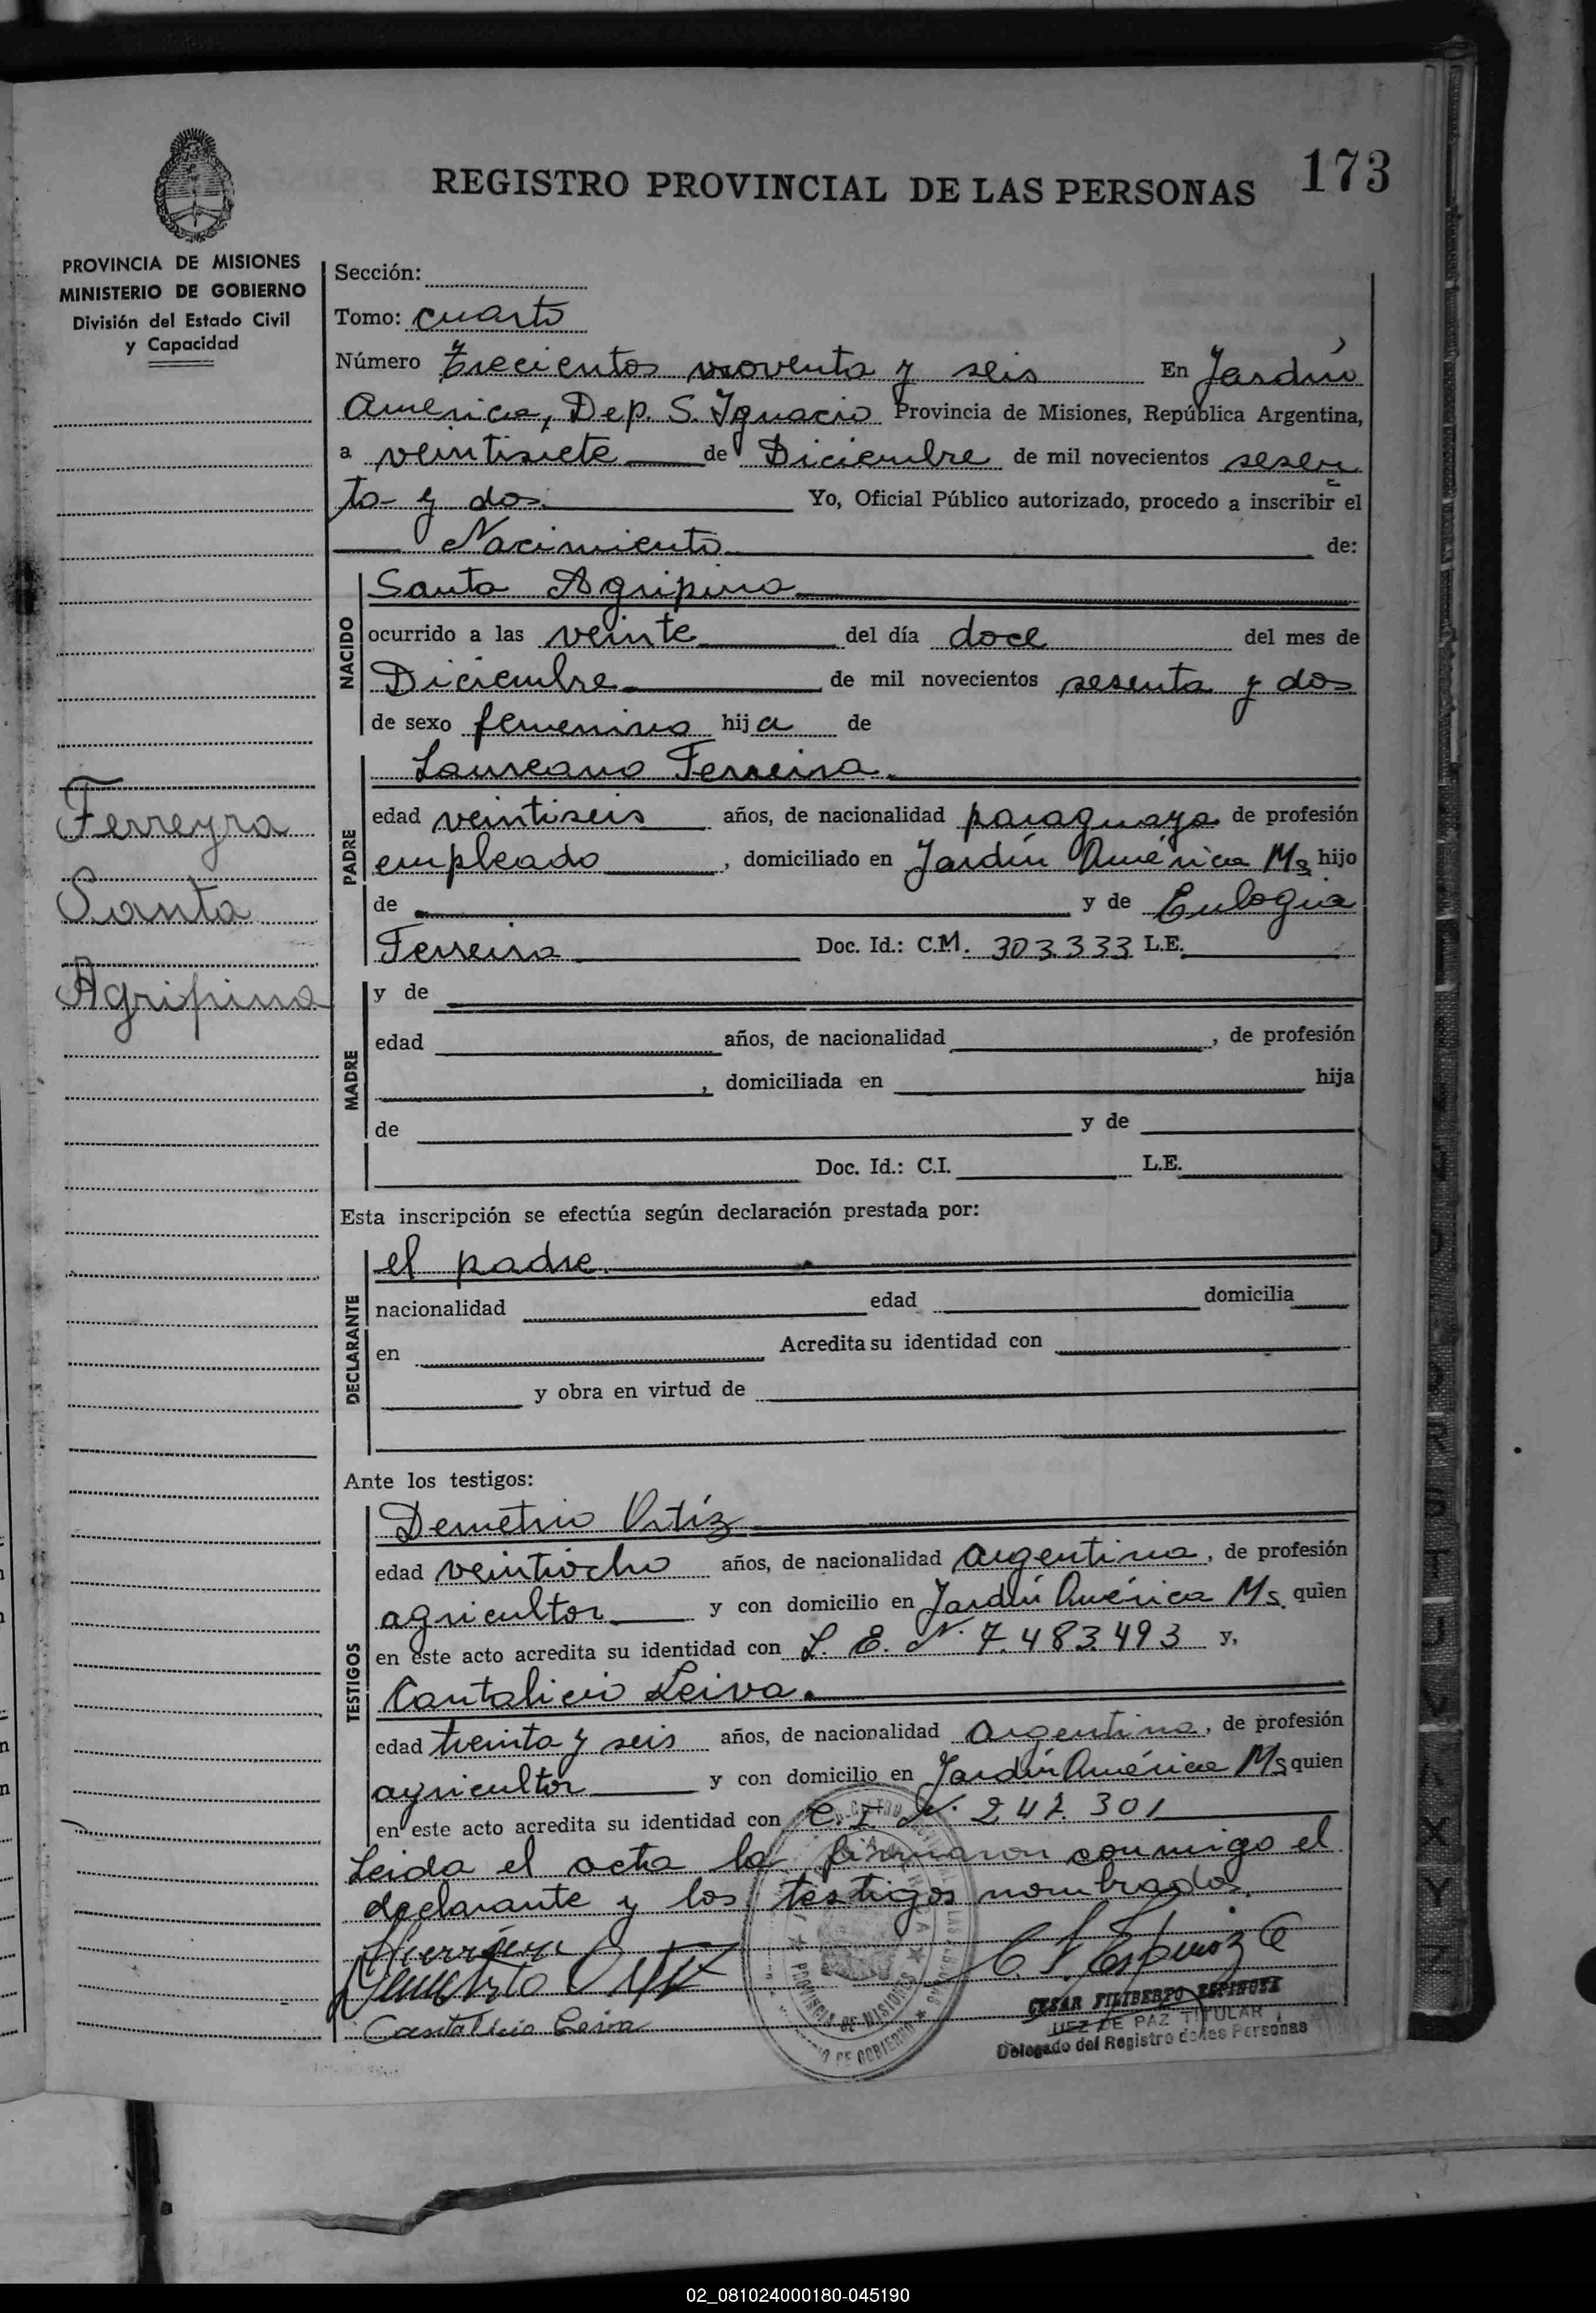 REGISTRO PROVINCIAL DE LAS PERSONAS 173
PROVINCIA DE MISIONES
MINISTERIO DE GOBIERNO
División del Estado Civil
y Capacidad
Sección:
Tomo: cuarto
Número Trecientos noventa y seis En Jardín
America, Dep. S. Ignacio Provincia de Misiones, República Argentina,
a veintisiete de Diciembre de mil novecientos sesen
ta y dos. Yo, Oficial Público autorizado, procedo a inscribir el
Nacimiento de:
NACIDO
Santa Agripina
ocurrido a las veinte del día doce del mes de
Diciembre de mil novecientos sesenta y dos
de sexo femenino hija de
Ferreyra
Santa
Agripina
PADRE
Laureano Ferreira.
edad veintiseis años, de nacionalidad paraguaya de profesión
empleado, domiciliado en Jardín América Ms hijo
de y de Eulogia
Ferreira Doc. Id.: C.M. 303.333 L.E.
MADRE
y de
edad años, de nacionalidad , de profesión
, domiciliada en hija
de y de
Doc. Id.: C.I. L.E.
Esta inscripción se efectúa según declaración prestada por:
DECLARANTE
el padre.
nacionalidad edad domicilia
en Acredita su identidad con
y obra en virtud de
Ante los testigos:
TESTIGOS
Demetrio Ortíz
edad veintiocho años, de nacionalidad argentina, de profesión
agricultor y con domicilio en Jardín América Ms. quien
en este acto acredita su identidad con L. E. N. 7.483.493 y,
Cantalicio Leiva.
edad treinta y seis años, de nacionalidad argentina, de profesión
agricultor y con domicilio en Jardín América Ms quien
en este acto acredita su identidad con C. I. N. 242.301
Leida el acta la firmaron conmigo el
declarante y los testigos nombrados.
Demetrio Ortiz
C. F. Espinoza
Cantalicio Leiva
CESAR FILIBERTO ESPINOZA
JUEZ DE PAZ TITULAR
Delegado del Registro de las Personas
PROVINCIA DE MISIONES
02_081024000180-045190